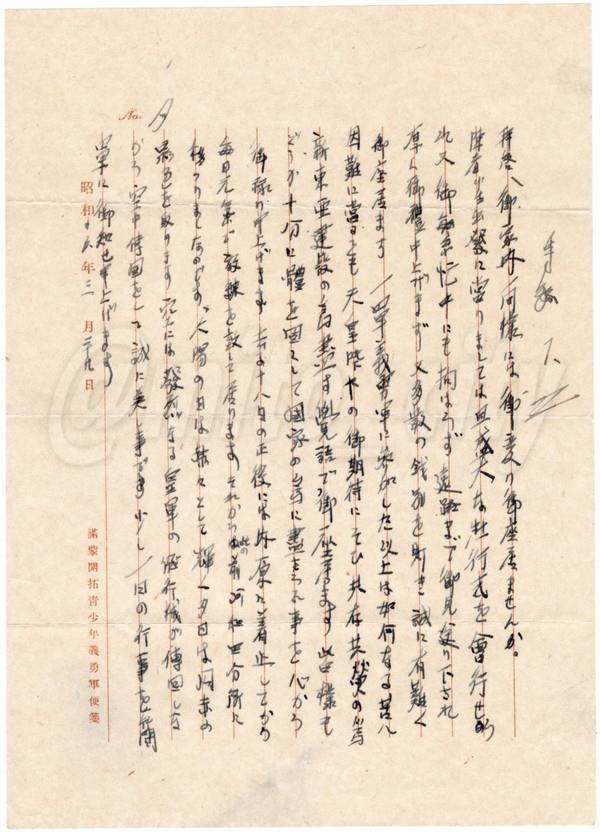 拝啓、御家内一同様には御変り御座居ませんか。
陳者が当出発に当りましては且盛大な壮行式を会行せ
れ又御多忙中にも拘はらず遠路まで御見送り下され
厚く御禮申上げます又多数の餞別を貯き誠に有難く
御座居ます 一單義勇軍に参加した以上は如何なる苦し
因難に當るとも天皇陛下の御期待にそひ共存共栄の為
新東亜建設の為盡す覚語で御座居ます 皆様も
どうか十分に體を固くして国家の為に盡され事を心から
御祈り申上げます 去の十八日の正後に内原に着止してから
毎日元気で訓練を致して居ります それから此の
移りましたのです 太陽の日は赫々として輝く夕日は
景色を取ります 空には発する皇軍の飛行機が傳回しな
がら空中傳回をして誠に美事です 少し一日の行事を
單に御知せ申上げます
No.
昭和十五年三月二十九日
滿蒙開拓青少年義勇軍便箋
@